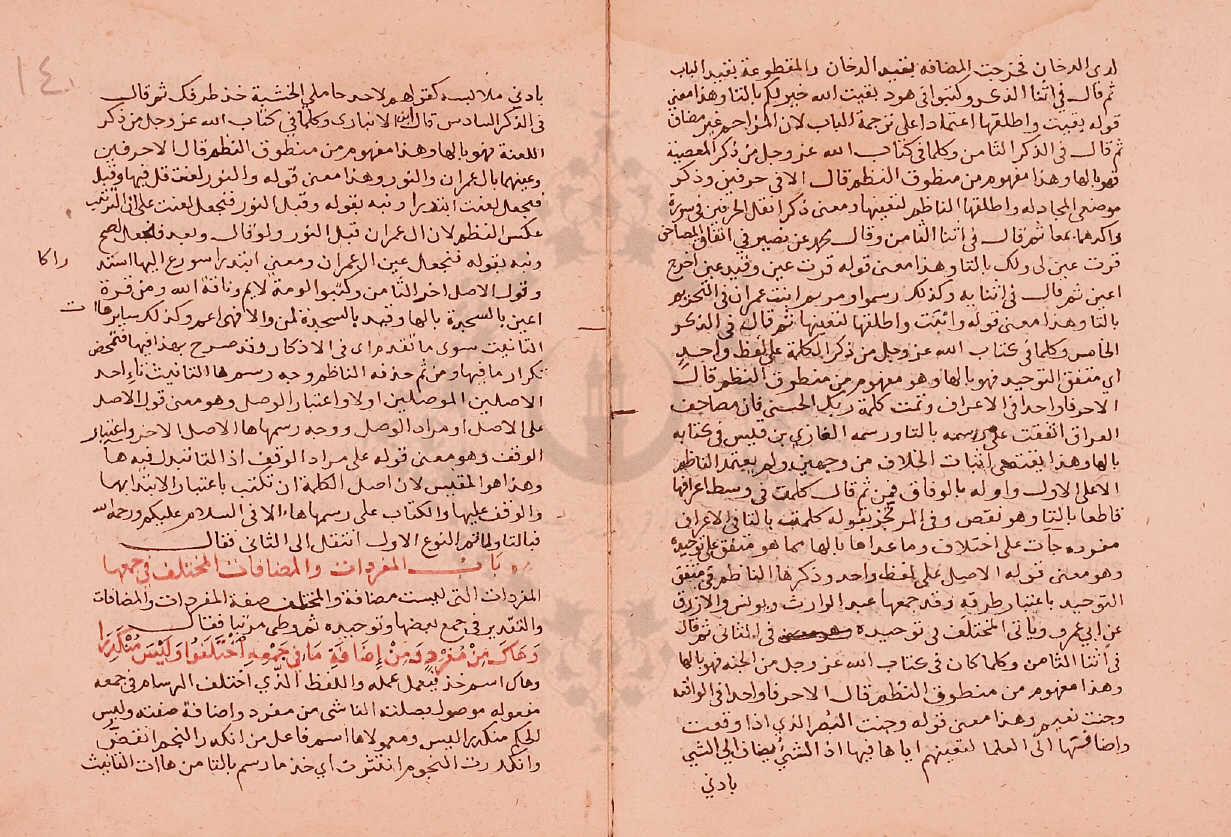 لدى الدخان فخرجت المضافه بقيد الدخان والمقطوعة بقيد الباب
ثم قال في اثنا الذكر وكتبوا في هود بقيت الله خير لكم بالتا وهذا معنى
قوله بقيت واطلقها اعتمادا على ترجمة الباب لان المزاحم غير مضاف
ثم قال في الذكر الثامن وكلما في كتاب الله عز وجل من ذكر المعصية
فهو بالها وهذا مفهوم من منطوق النظم قال الا في حرفين وذكر
موضعي المجادله واطلقها الناظم لتعينها ومعنى ذكرا نقل الحرفين في سورة
واكدها بمعا ثم قال في اثنا الثامن وقال محمد عن نصير في اتفاق المصاحف
قرت عين لي ولك بالتا وهذا معنى قوله قرت عين وقيد عين اخرج
اعين ثم قال في اثنا به وكذلك رسموا ومريم ابنت عمران في التحريم
بالتا وهذا معنى قوله وابنت واطلقها لتعينها ثم قال في الذكر
الخامس وكلما في كتاب الله عز وجل من ذكر الكلمة على لفظ واحد
اي متفق التوحيد فهو بالها وهو مفهوم من منطوق النظم قال
الا حرفا واحدا في الاعراف وتمت كلمة ربك الحسنى فان مصاحف
العراق اتفقت على رسمه بالتا ورسمه الغازي بن قيس في كتابه
بالها وهذا يقتضي اثبات الخلاف من وجهين ولم يعتمد الناظم
الا على الاول واوله بالوفاق فمن ثم قال كلمت في وسط اعرافها
قاطعا بالتا وهو نقص وفي المرتجز بقوله كلمت بالتا في الاعراف
مفرده جات على اختلاف وما عداها بالها مما هو متفق على توحيده
وهو معنى قوله الاصيل على لفظ واحد وذكرها الناظم في متفق
التوحيد باعتبار طرقه وقد جمعها عبد الوارث ويونس والازرق
عن ابي عمرو وياتي المختلف في توحيده في الثاني ثم قال
في اثنا الثامن وكلما كان في كتاب الله عز وجل من الجنه فهو بالها
وهذا مفهوم من منطوق النظم قال الا حرفا واحدا في الواقعه
وجنت نعيم وهذا معنى قوله وجنت البصر الذي اذا وقعت
واضافتها الى العلما لتعينهم اياها فيها اذ الشئ يضاف الى الشئ
بادني
١٤٠
بادني ملابسه كقولهم لاحد حاملي الخشبة خذ طرفك ثم قال
في الذكر السادس قال ابن الانباري وكلما في كتاب الله عز وجل من ذكر
اللعنة فهو بالها وهذا مفهوم من منطوق النظم قال الا حرفين
وعينهما بال عمران والنور وهذا معنى قوله والنور لعنت قل فيها وقبل
فنجعل لعنت ابتدرا ونبه بقوله وقبل النور فنجعل لعنت على ان الترتيب
عكس النظم لان ال عمران قبل النور ولو قال وبعد فنجعل لصح
راكا
ونبه بقوله فنجعل عين ال عمران ومعنى ابتدرا سورع اليها اسند
وقول الاصل اخر الثامن وكتبوا لومة لايم وناقة الله ومن قرة
اعين بالسجدة بالها وقيد بالسجدة لمن والا فهي اعم وكذلك ساير هاات
التانيث سوى ما تقدم اي في الاذكار وقد صرح بهذا فيها فتمحض
تكرار ما فيها ومن ثم حذفه الناظم وجه رسم ها التانيث تاء احد
الاصلين الموصلين اولا واعتبار الوصل وهو معنى قول الاصل
على الاصل او مراد الوصل ووجه رسمها ها الاصل الاخر واعتبار
الوقف وهو معنى قوله على مراد الوقف اذ التا تبدل فيه ها
وهذا هو المقيس لان اصل الكلمة ان تكتب باعتبار الابتدا بها
والوقف عليها والكتاب على رسمها ها الا في السلام عليكم ورحمة الله
فبالتا ولما تم النوع الاول انتقل الى الثاني فقال
باب المفردات والمضافات المختلف في جمعها
المفردات التي ليست مضافة والمختلف صفة المفردات والمضافات
والتقدير في جمع بعضها وتوحيده ثم وطى مرتبا فقال
وهاك من مفرد ومن اضافة ما في جمعه اختلفوا وليس منكدرا
وهاك اسم خذ يعمل عمله واللفظ الذي اختلف الرسام في جمعه
مفعوله موصول بصلته الناشي من مفرد واضافة صفته وليس
الحكم منكدرا ليس ومعمولاها اسم فاعل من انكدر النجم انقض
وانكدرت النجوم انتثرت اي خذ ما رسم بالتا من هاات التانيث